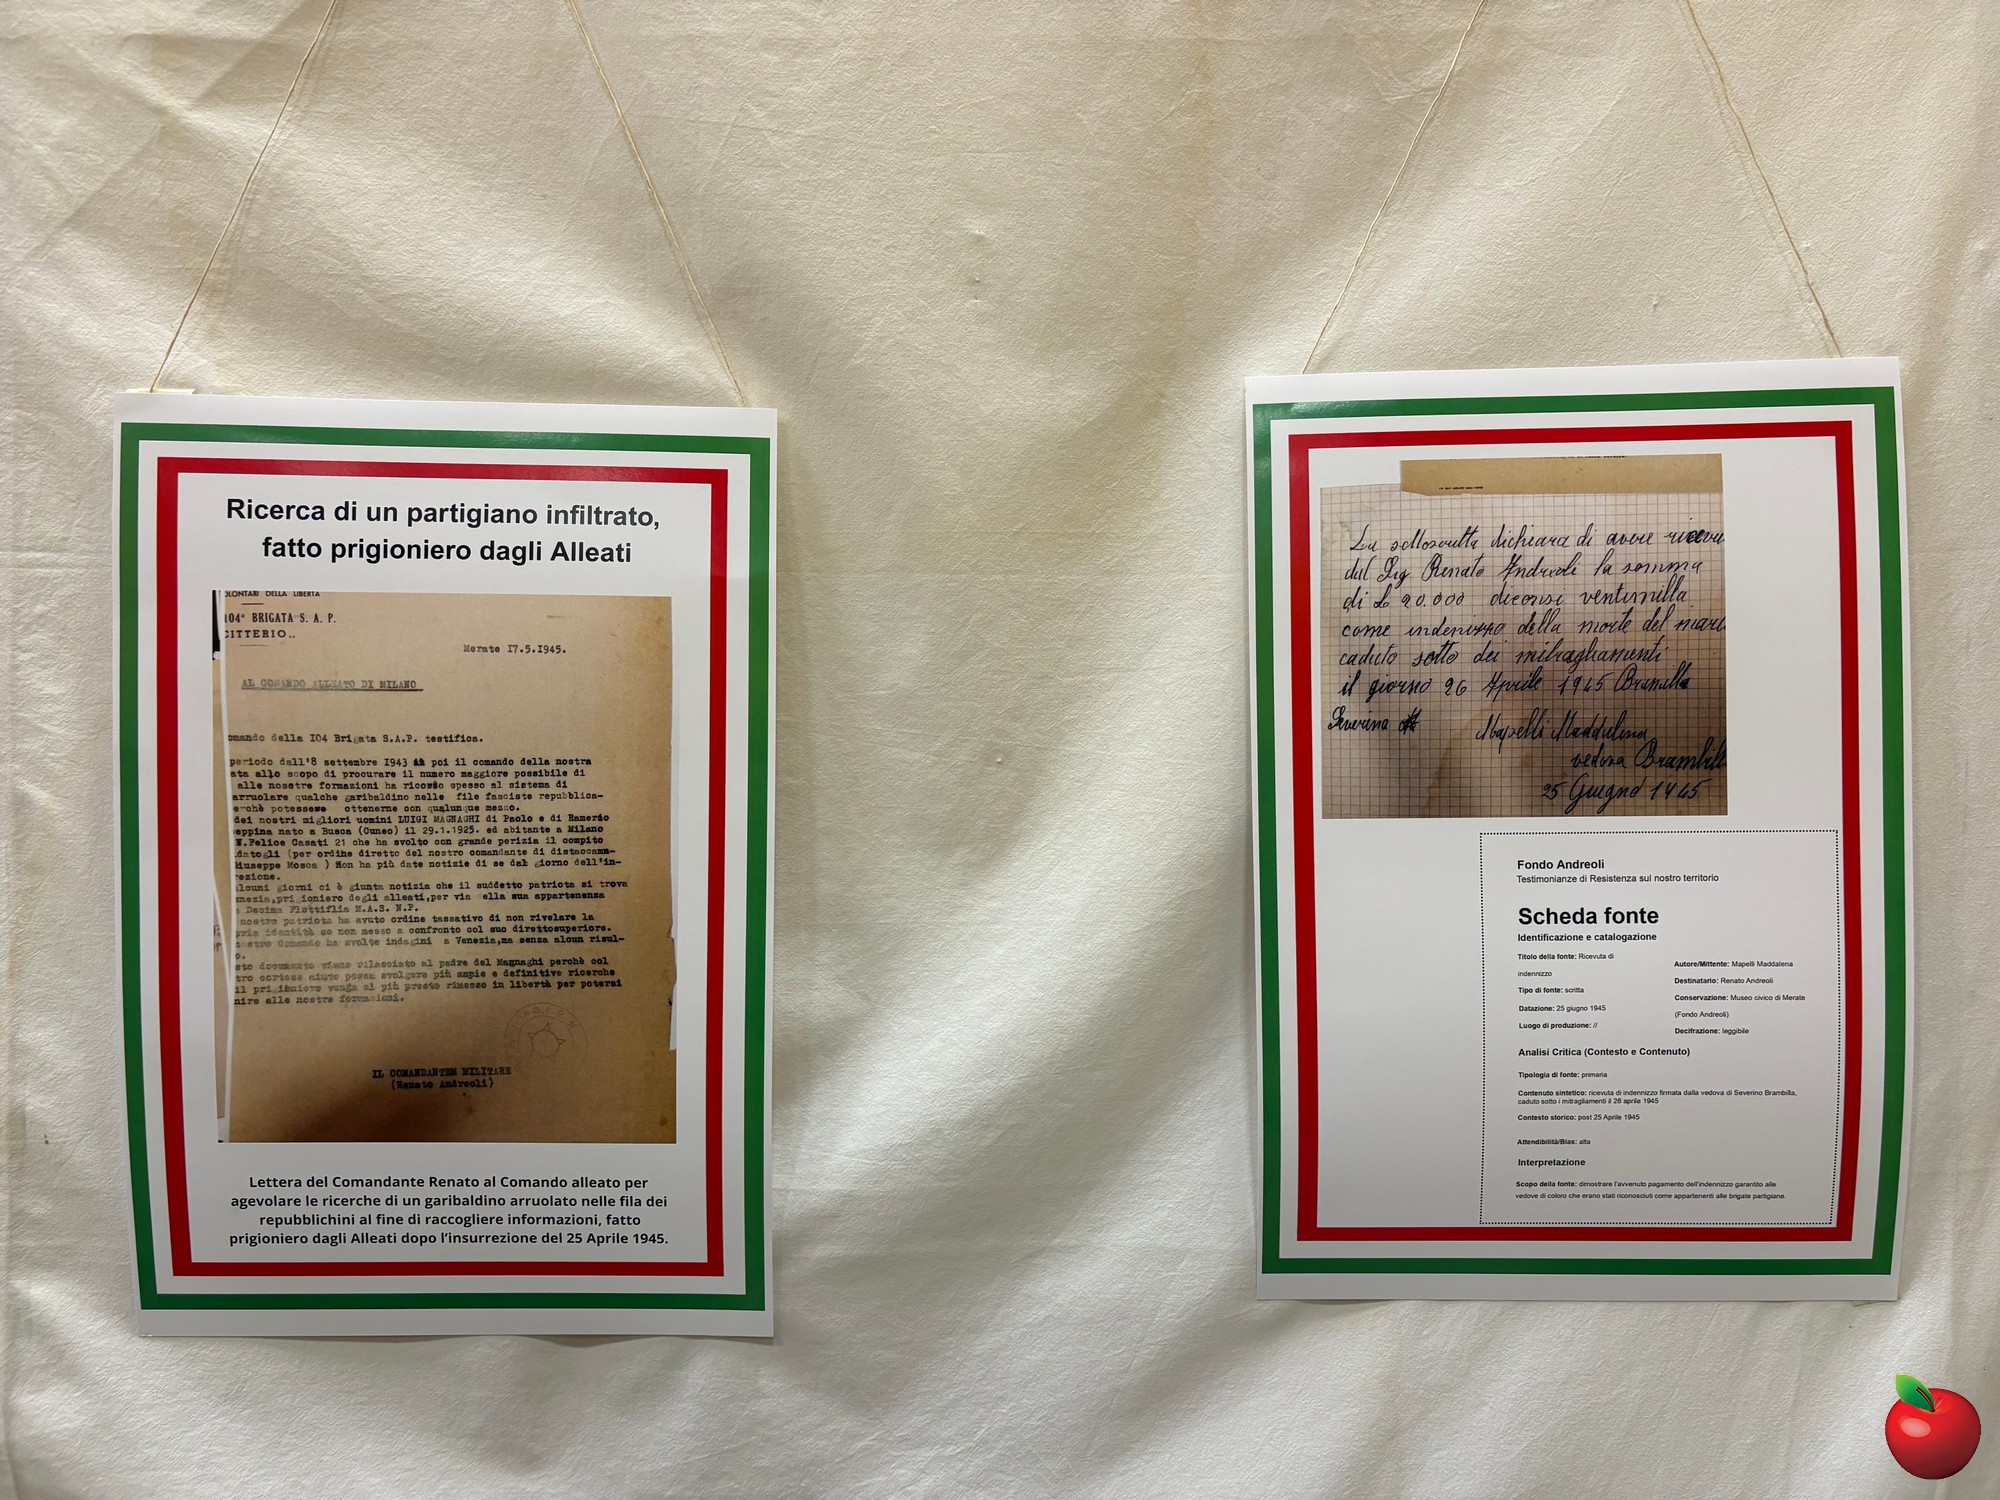 Ricerca di un partigiano infiltrato,
fatto prigioniero dagli Alleati
OLONTARI DELLA LIBERTA
104ª BRIGATA S. A. P.
CITTERIO..
Merate I7.5.I945.
AL COMANDO ALLEATO DI MILANO
omando della I04 Brigata S.A.P. testifica.
periodo dall'8 settembre I943 in poi il comando della nostra
ata allo scopo di procurare il numero maggiore possibile di
alle nostre formazioni ha ricorso spesso al sistema di
arruolare qualche garibaldino nelle file fasciste repubblica-
erchè potessewe ottenerne con qualunque mezzo.
dei nostri migliori uomini LUIGI MAGNAGHI di Paolo e di Ramerio
eppina nato a Busca (Cuneo) il 29.1.1925. ed abitante a Milano
N.Felice Casati 21 che ha svolto con grande perizia il compito
datogli (per ordine diretto del nostro comandante di distaccam-
iuseppe Mosca ) Non ha più date notizie di se dal giorno dell'in-
rezione.
alcuni giorni ci è giunta notizia che il suddetto patriota si trova
nezia,prigioniero degli alleati,per via ella sua appartenenza
a Decima Flottiflia M.A.S. N.P.
nostro patriota ha avuto ordine tassativo di non rivelare la
pria identità se non messo a confronto col suo direttosuperiore.
nostro Comando ha svolte indagini a Venezia,ma senza alcun risul-
o.
sto documento viene rilasciato al padre del Magnaghi perchè col
tro cortese aiuto possa svolgere più ampie e definitive ricerche
il prigioniero venga al più presto rimesso in libertà per potersi
nire alle nostre formazioni.
IL COMANDANTEM MILITARE
(Renato Andreoli)
Lettera del Comandante Renato al Comando alleato per
agevolare le ricerche di un garibaldino arruolato nelle fila dei
repubblichini al fine di raccogliere informazioni, fatto
prigioniero dagli Alleati dopo l'insurrezione del 25 Aprile 1945.
La sottoscritta dichiara di avere ricevu
dal Sig Renato Andreoli la somma
di £ 20.000 dicorsi ventimilla
come indenizzo della morte del mari
caduto sotto dei mitragliamenti
il giorno 26 Aprile 1945 Brambilla
Severino
Mapelli Maddalena
vedova Brambill
25 Giugno 1945
Fondo Andreoli
Testimonianze di Resistenza sul nostro territorio
Scheda fonte
Identificazione e catalogazione
Titolo della fonte: Ricevuta di
indennizzo
Tipo di fonte: scritta
Datazione: 25 giugno 1945
Luogo di produzione: //
Autore/Mittente: Mapelli Maddalena
Destinatario: Renato Andreoli
Conservazione: Museo civico di Merate
(Fondo Andreoli)
Decifrazione: leggibile
Analisi Critica (Contesto e Contenuto)
Tipologia di fonte: primaria
Contenuto sintetico: ricevuta di indennizzo firmata dalla vedova di Severino Brambilla,
caduto sotto i mitragliamenti il 26 aprile 1945
Contesto storico: post 25 Aprile 1945
Attendibilità/Bias: alta
Interpretazione
Scopo della fonte: dimostrare l'avvenuto pagamento dell'indennizzo garantito alle
vedove di coloro che erano stati riconosciuti come appartenenti alle brigate partigiane.